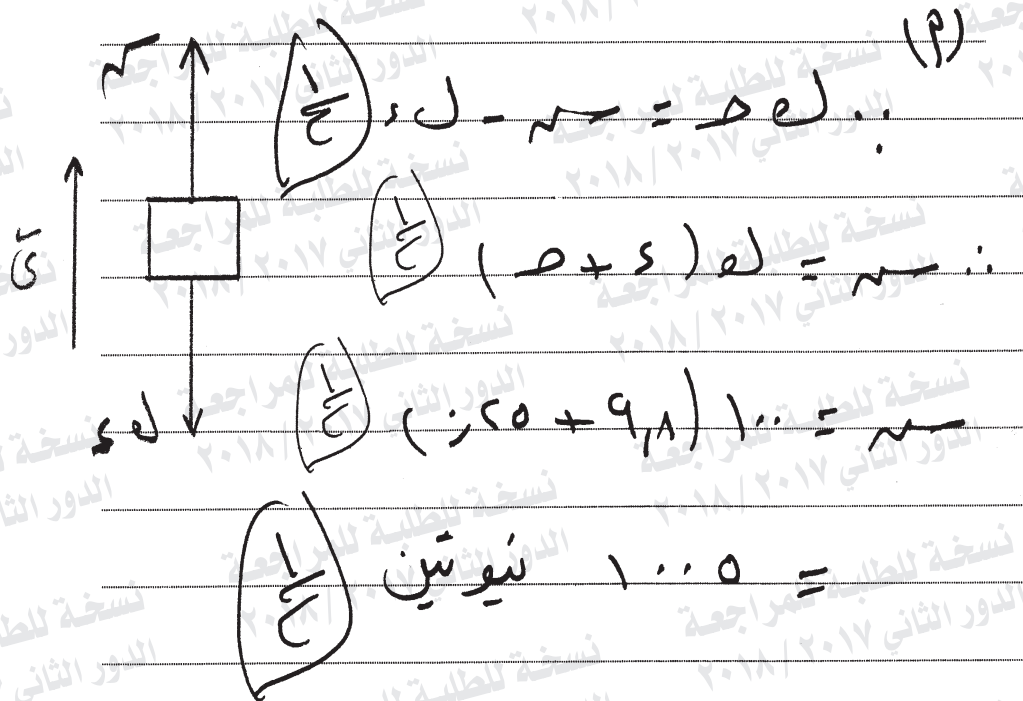 (٢)
∵ ك جـ = سـ - ك ء ١/٢
∴ سـ = ك (ء + جـ) ١/٢
سـ = ١٠٠ (٩,٨ + ٠,٢٥) ١/٢
= ١٠٠٥ نيوتن ١/٢
سـ
ك ء
نسخة للطلبة للمراجعة
الدور الثاني ٢٠١٧ / ٢٠١٨